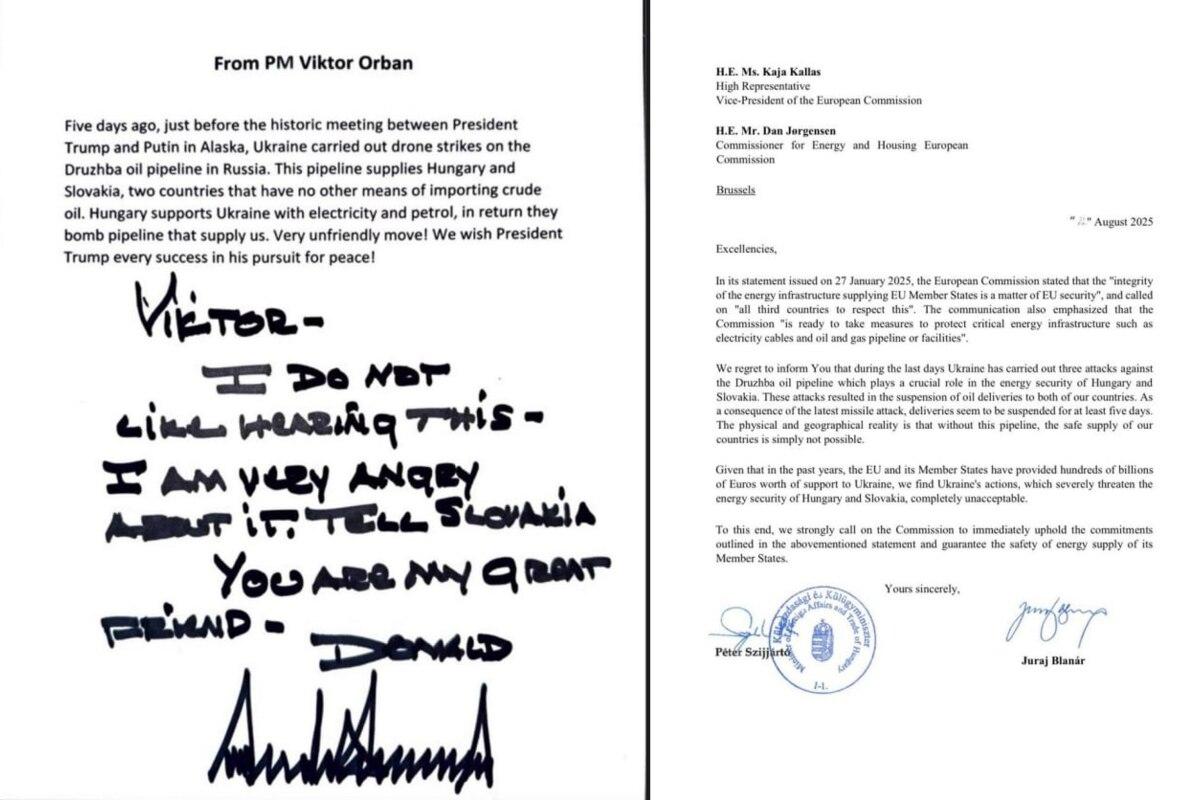 From PM Viktor Orban
Five days ago, just before the historic meeting between President
Trump and Putin in Alaska, Ukraine carried out drone strikes on the
Druzhba oil pipeline in Russia. This pipeline supplies Hungary and
Slovakia, two countries that have no other means of importing crude
oil. Hungary supports Ukraine with electricity and petrol, in return they
bomb pipeline that supply us. Very unfriendly move! We wish President
Trump every success in his pursuit for peace!
VIKTOR -
I DO NOT
LIKE HEARING THIS -
I AM VERY ANGRY
ABOUT IT. TELL SLOVAKIA
YOU ARE MY GREAT
FRIEND -
DONALD
H.E. Ms. Kaja Kallas
High Representative
Vice-President of the European Commission
H.E. Mr. Dan Jørgensen
Commissioner for Energy and Housing European
Commission
Brussels
" " August 2025
Excellencies,
In its statement issued on 27 January 2025, the European Commission stated that the "integrity
of the energy infrastructure supplying EU Member States is a matter of EU security", and called
on "all third countries to respect this". The communication also emphasized that the
Commission "is ready to take measures to protect critical energy infrastructure such as
electricity cables and oil and gas pipeline or facilities".
We regret to inform You that during the last days Ukraine has carried out three attacks against
the Druzhba oil pipeline which plays a crucial role in the energy security of Hungary and
Slovakia. These attacks resulted in the suspension of oil deliveries to both of our countries. As
a consequence of the latest missile attack, deliveries seem to be suspended for at least five days.
The physical and geographical reality is that without this pipeline, the safe supply of our
countries is simply not possible.
Given that in the past years, the EU and its Member States have provided hundreds of billions
of Euros worth of support to Ukraine, we find Ukraine's actions, which severely threaten the
energy security of Hungary and Slovakia, completely unacceptable.
To this end, we strongly call on the Commission to immediately uphold the commitments
outlined in the abovementioned statement and guarantee the safety of energy supply of its
Member States.
Yours sincerely,
Külgazdasági és Külügyminiszter
Minister of Foreign Affairs and Trade of Hungary
1-1.
Péter Szijjártó
Juraj Blanár